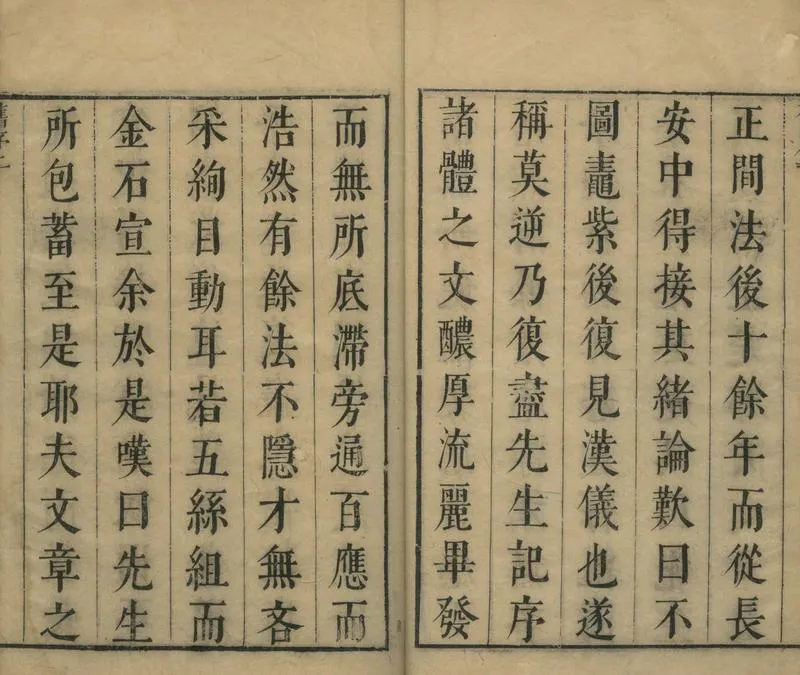 正間法後十餘年而從長
安中得接其緒論歎曰不
圖鼃紫後復見漢儀也遂
稱莫逆乃復盡先生記序
諸體之文醲厚流麗畢發
而無所底滯旁通百應而
浩然有餘法不隱才無吝
采絢目動耳若五絲組而
金石宣余於是嘆曰先生
所包蓄至是耶夫文章之